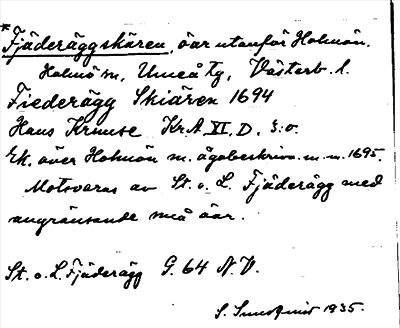 *Fjäderäggskären, öar utanför Holmön.
Holmö sn, Umeå tg, Västerb. l.
Fiederägg Skiären 1694
Hans Kruuse Kr.A. XI. D. 3:o.
Ek. över Holmön m. ägobeskrivn. m. m. 1695.
Motsvaras av St. o. L. Fjäderägg med
angränsande små öar.
St. o. L. Fjäderägg G. 64 N.V.
S. Sundqvist 1935.